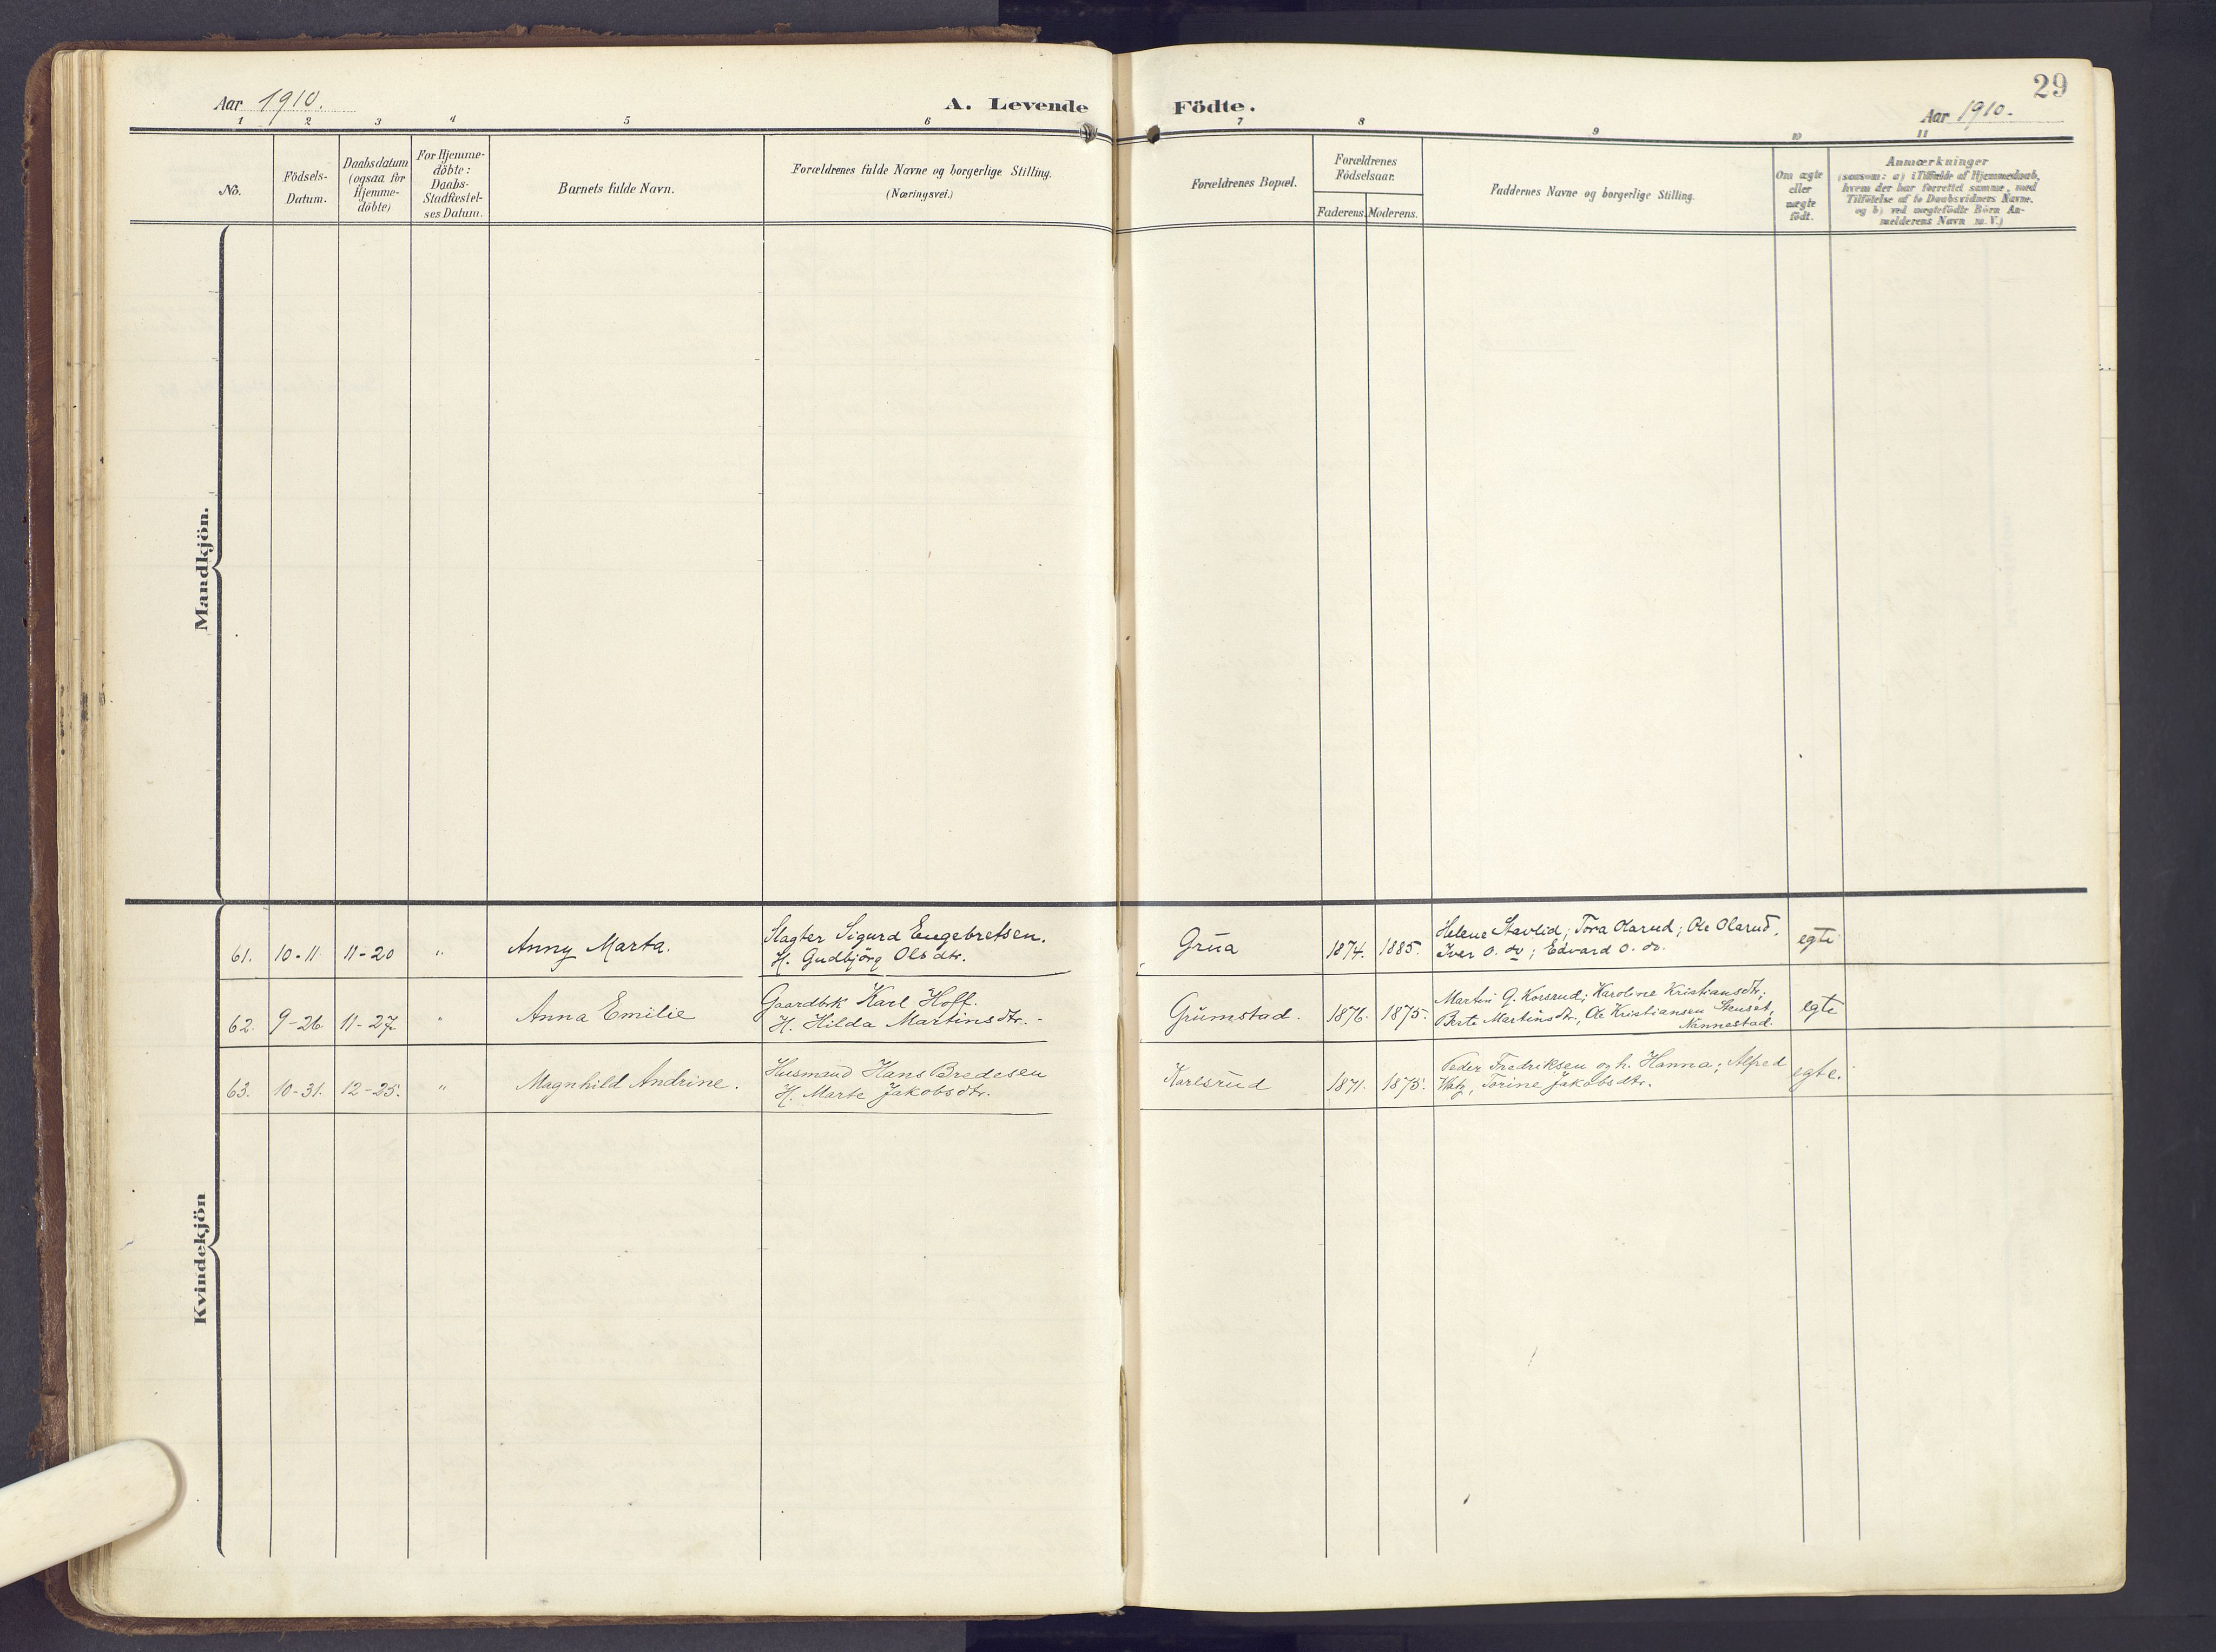 29
Aar 1910.
A. Levende Födte.
Aar 1910.
1 2 3 4 5 6 7 8 9 10 11
No.
Födsels-
Datum.
Daabsdatum
(ogsaa for
Hjemme-
döbte)
For Hjemme-
döbte:
Daabs-
Stadfæstel-
ses Datum.
Barnets fulde Navn.
Forældrenes fulde Navne og borgerlige Stilling.
(Næringsvei.)
Forældrenes Bopæl.
Forældrenes
Födselsaar.
Faderens. Moderens.
Faddernes Navne og borgerlige Stilling.
Om ægte
eller
uægte
födt.
Anmærkninger
(saasom: a) i Tilfælde af Hjemmedaab,
hvem der har forrettet samme, med
Tilföielse af to Daabsvidners Navne,
og b) ved uægtefödte Börn An-
melderens Navn m.V.)
Mandkjön.
Kvindekjön
61. 10-11 11-20 " Anny Marta.
Slagter Sigurd Engebretsen.
H. Gudbjörg Olsdtr.
Grua 1874. 1885.
Helene Stavlid; Tora Olarud; Ole Olarud,
Iver O. do; Edvard O. do.
egte
62. 9-26 11-27 " Anna Emilie
Gaardbrk Karl Hoff.
H. Hilda Martinsdtr. -
Grumstad. 1876. 1875.
Martin G. Korsrud; Karoline Kristiansdtr,
Berte Martinsdtr., Ole Kristiansen Stenset,
Nannestad.
egte
63. 10-31. 12-25. " Magnhild Andrine.
Husmand Hans Bredesen
H. Marte Jakobsdtr.
Karlsrud 1871. 1875.
Peder Fredriksen og h. Hanna; Alfred
Torine Jakobsdtr.
egte.